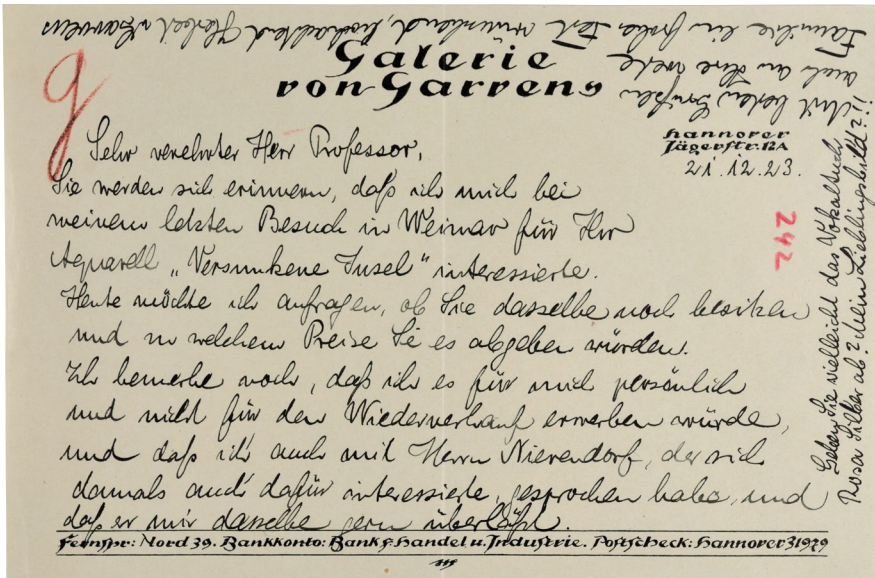 Galerie
von Garvens
Hannover
Jägerstr. 12A
21.12.23.
g
242
Sehr verehrter Herr Professor,
Sie werden sich erinnern, daß ich mich bei
meinem letzten Besuch in Weimar für Ihr
Aquarell „Versunkene Insel" interessierte.
Heute möchte ich anfragen, ob Sie dasselbe noch besitzen
und zu welchem Preise Sie es abgeben würden.
Ich bemerke noch, daß ich es für mich persönlich
und nicht für den Wiederverkauf erwerben würde,
und daß ich auch mit Herrn Nierendorf, der sich
damals auch dafür interessierte, gesprochen habe, und
daß er mir dasselbe gern überläßt.
Mit besten Grüßen
auch an Ihre werte
Familie ein frohes Fest wünschend, hochachtend Herbert vGarvens
Geben Sie vielleicht das Vokaltuch
Rosa Silber ab? Mein Lieblingsbild?!!
Fernspr: Nord 39. Bankkonto: Bank f. Handel u. Industrie. Postscheck: Hannover 31979